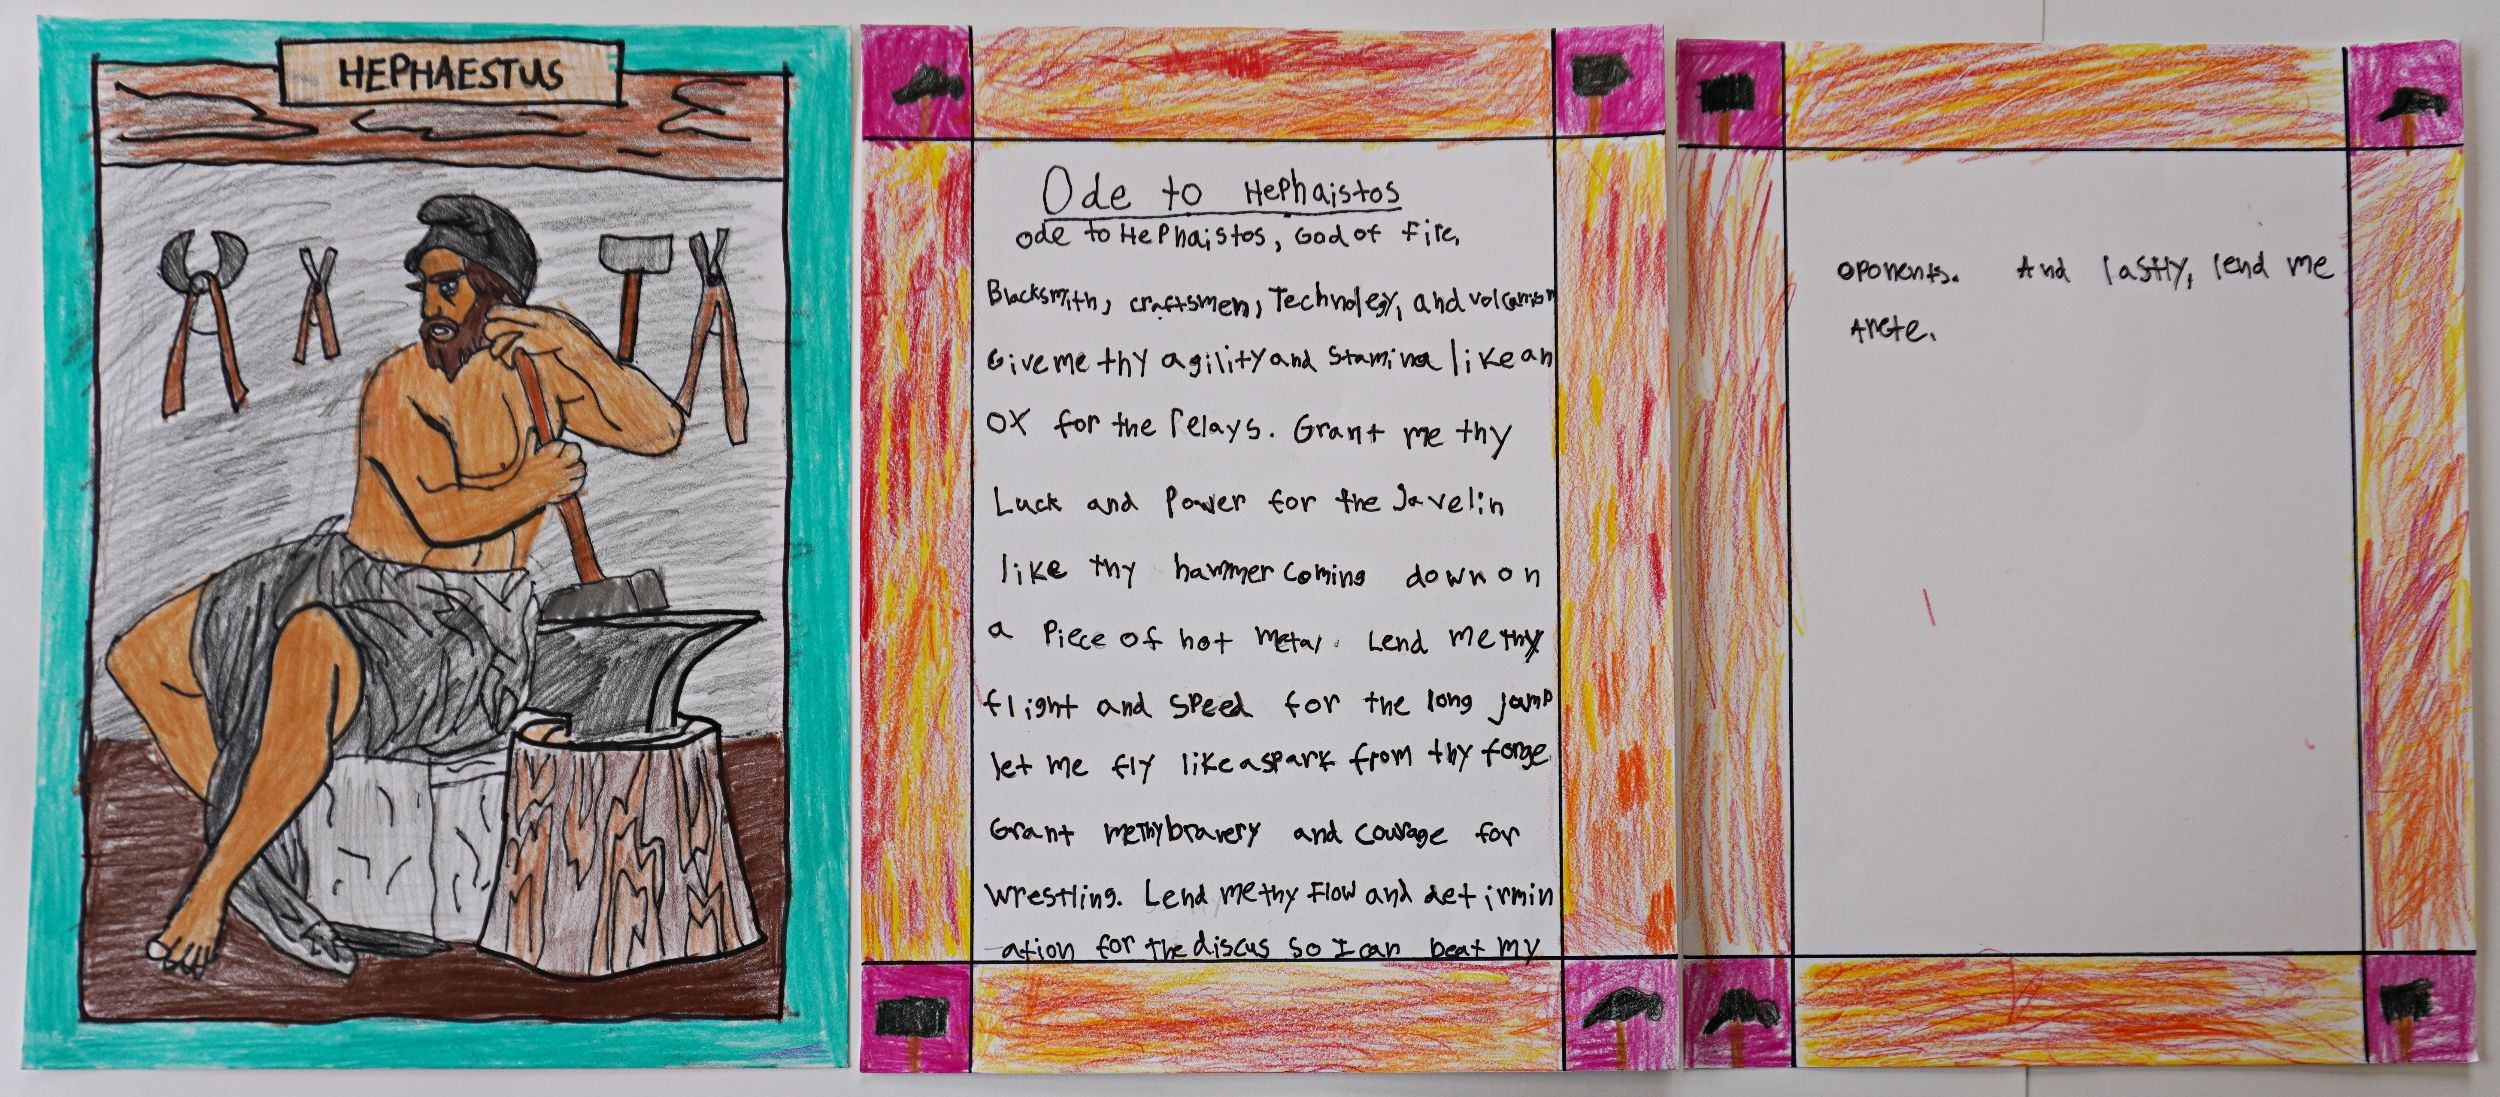 HEPHAESTUS
Ode to Hephaistos
ode to HePhaistos, God of Fire,
Blacksmith, craftsmen, Technolegy, and volcanism
Give me thy agility and Stamina like an
OX for the relays. Grant me thy
Luck and Power for the Javelin
like thy hammer coming down on
a Piece of hot metal. Lend me thy
flight and speed for the long jamp
let me fly like a spark from thy forge.
Grant me thy bravery and courage for
wrestling. Lend me thy Flow and detirmin
-ation for the discus so I can beat my
oponents. And lastly, lend me
Arete.